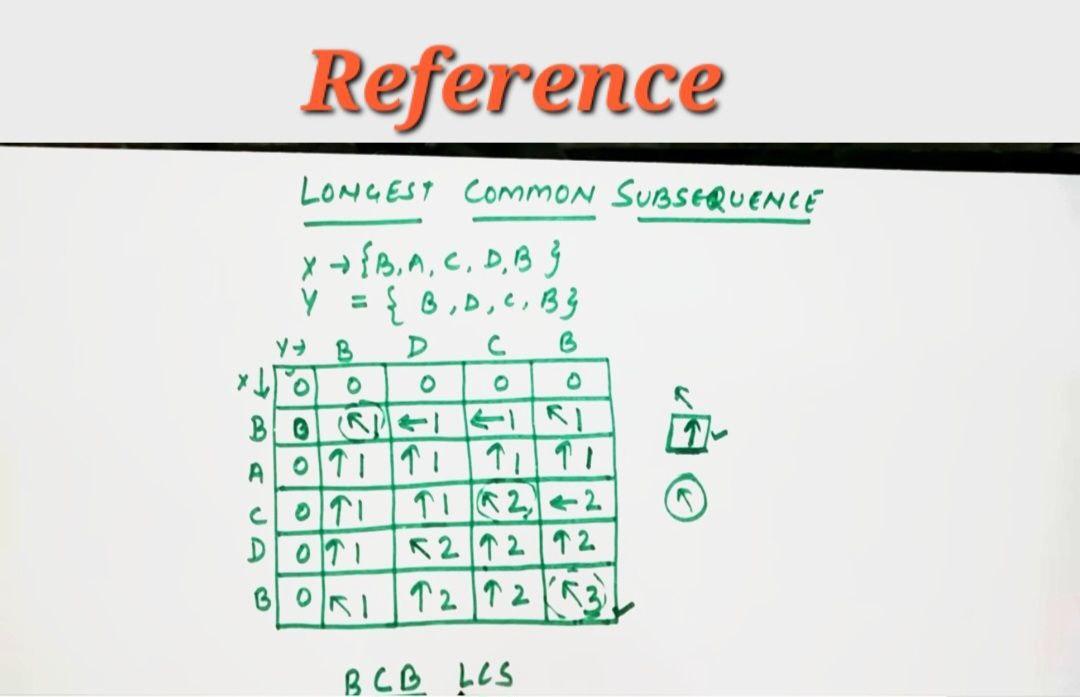 Reference
LONGEST COMMON SUBSEQUENCE
X → {B, A, C, D, B }
Y = { B, D, C, B}
Y→ B D C B
X↓ 0 0 0 0 0
B 0 ↖1 ←1 ←1 ↖1
A 0 ↑1 ↑1 ↑1 ↑1
C 0 ↑1 ↑1 ↖2 ←2
D 0 ↑1 ↖2 ↑2 ↑2
B 0 ↖1 ↑2 ↑2 ↖3
↖
↑ ✓
↖
BCB LCS